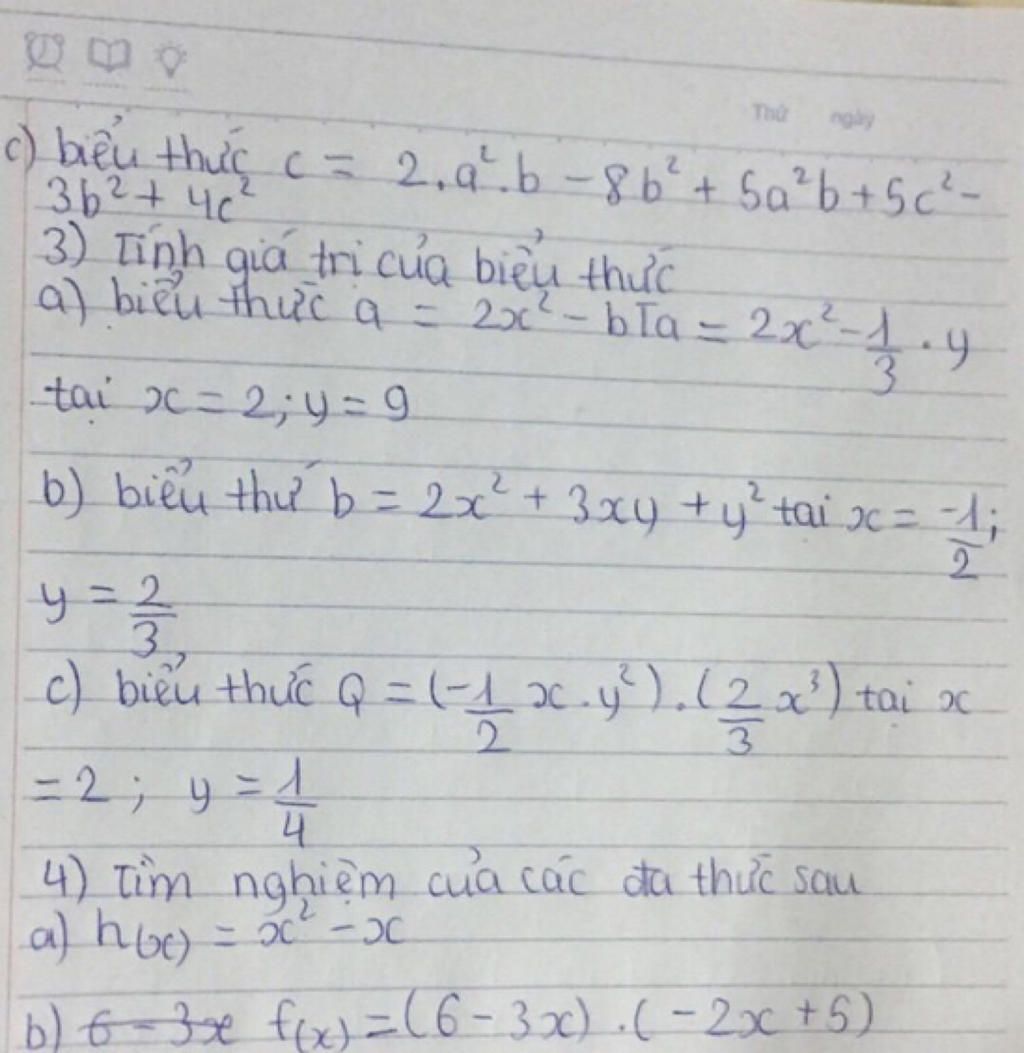 Thứ ngày
c) biểu thức c = 2.a².b - 8b² + 5a²b + 5c² -
3b² + 4c²
3) Tính giá trị của biểu thức
a) biểu thức a = 2x² - bTa = 2x² - 1/3 . y
tại x = 2; y = 9
b) biểu thứ b = 2x² + 3xy + y² tại x = -1/2;
y = 2/3
c) biểu thức Q = (-1/2 x . y²) . (2/3 x³) tại x
= 2 ; y = 1/4
4) Tìm nghiệm của các đa thức sau
a) h(x) = x² - x
b) 6 - 3x f(x) = (6 - 3x) . (-2x + 5)